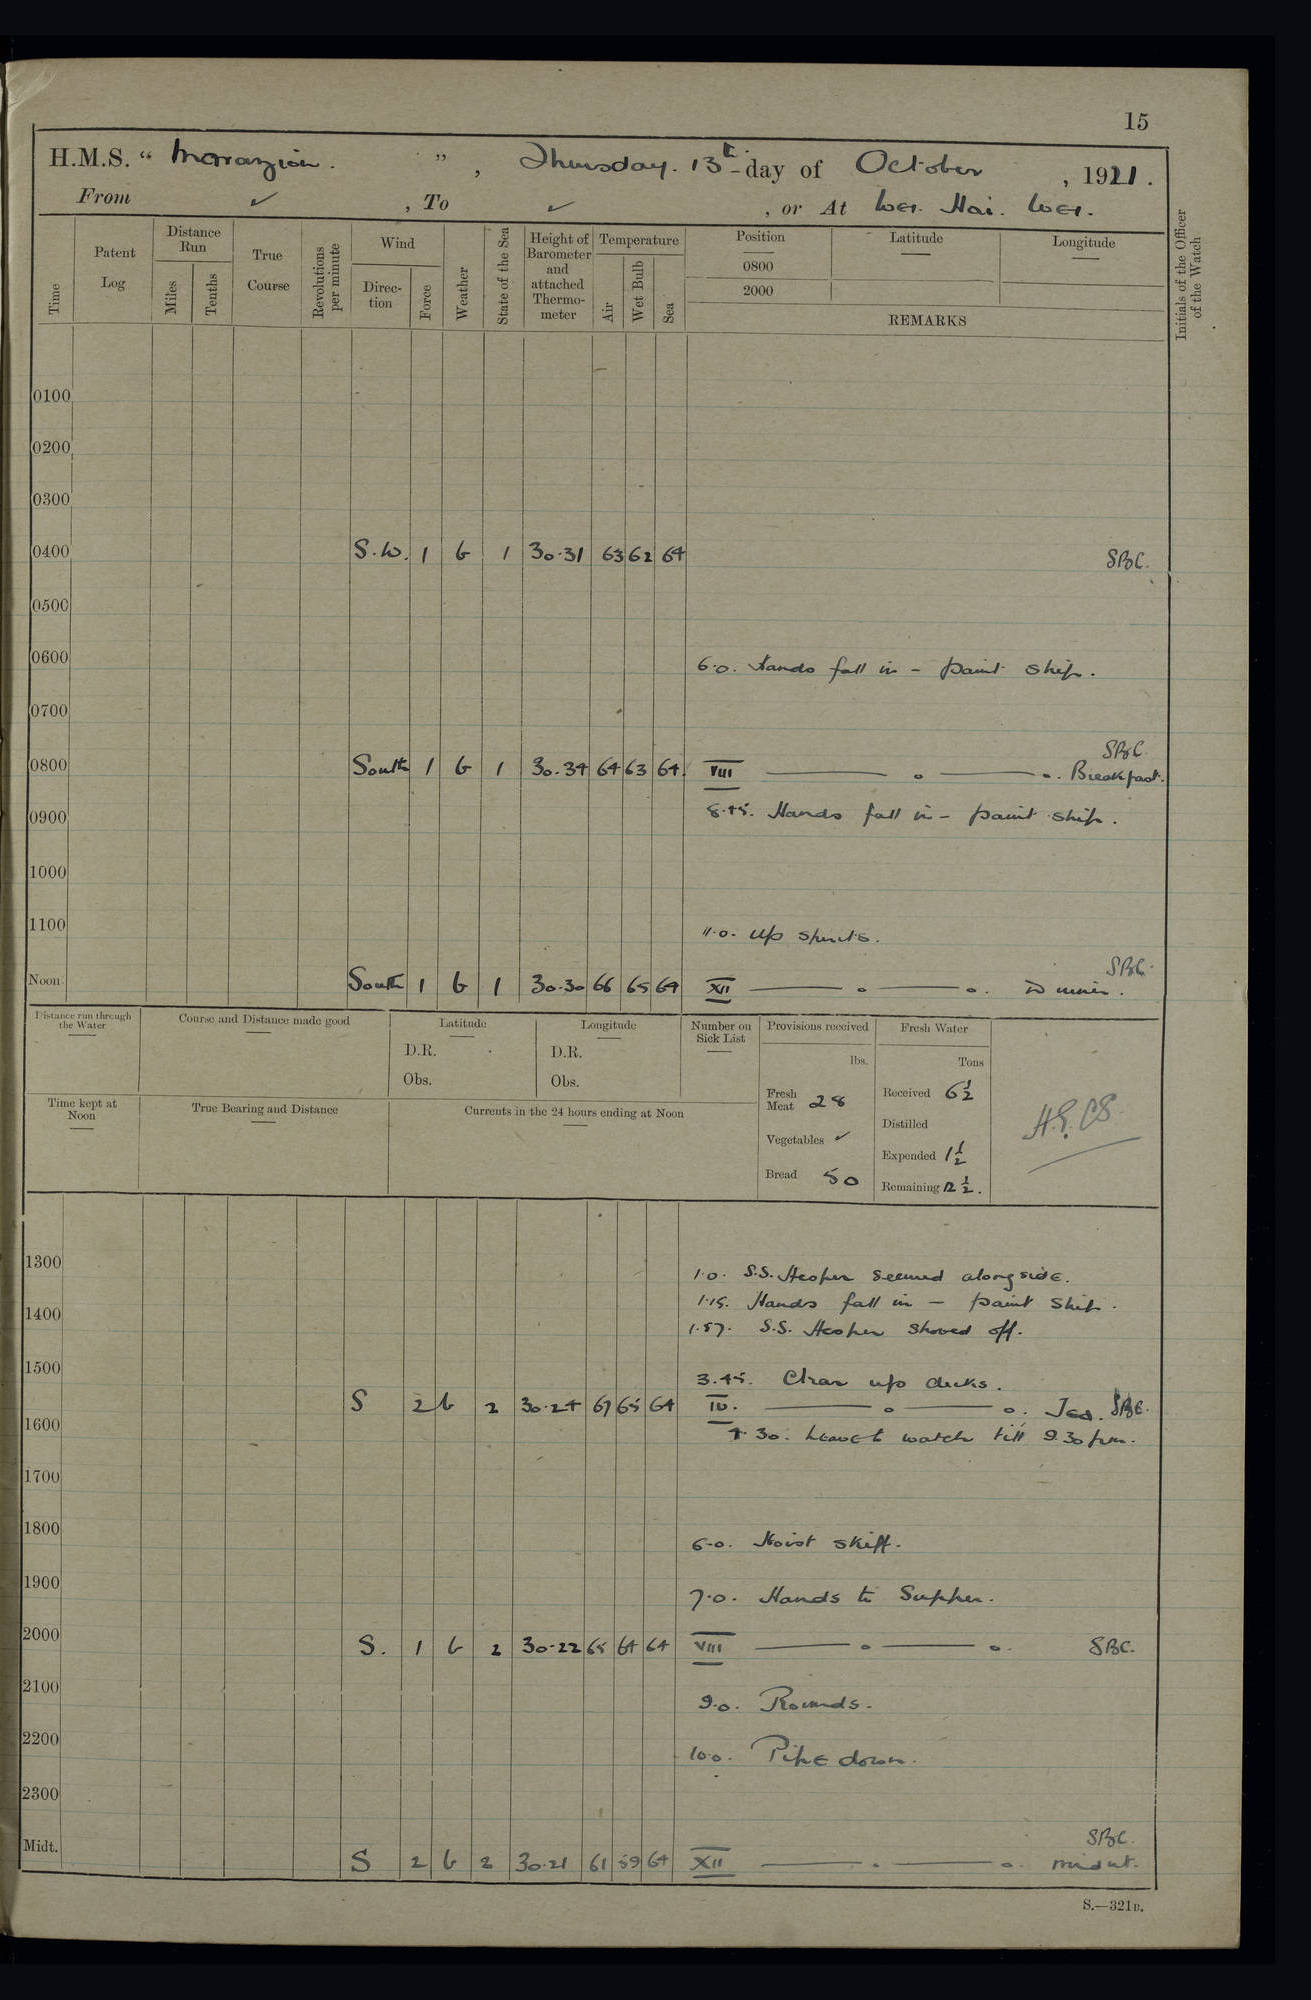 15
H.M.S. “ Marazion. ”, Thursday. 13th day of October, 1921.
From ✓, To ✓, or At Wei. Hai. Wei.
Time
Patent Log
Distance Run
Miles
Tenths
True Course
Revolutions per minute
Wind
Direction
Force
Weather
State of the Sea
Height of Barometer and attached Thermometer
Temperature
Air
Wet Bulb
Sea
Position
0800
2000
Latitude
Longitude
REMARKS
Initials of the Officer of the Watch
0100
0200
0300
0400 S.W. 1 b 1 30.31 63 62 64 SBC.
0500
0600 6.0. Hands fall in - paint ship.
0700
SBC
0800 South 1 b 1 30.34 64 63 64. VIII —— o —— o. Breakfast.
0900 8.45. Hands fall in - paint ship.
1000
1100 11.0. Up spirits.
SBC.
Noon South 1 b 1 30.30 66 65 64 XII —— o —— o. Dinner.
Distance run through the Water
Course and Distance made good
Latitude
D.R.
Obs.
Longitude
D.R.
Obs.
Number on Sick List
Provisions received
lbs.
Fresh Meat 28
Vegetables ✓
Bread 50
Fresh Water
Tons
Received 6½
Distilled
Expended 1½
Remaining 12½.
Time kept at Noon
True Bearing and Distance
Currents in the 24 hours ending at Noon
1300 1.0. S.S. Hesper secured alongside.
1.15. Hands fall in - paint ship.
1400 1.57. S.S. Hesper shoved off.
1500 3.45. Clear up decks.
S 2 b 2 30.24 67 65 64 IV. —— o —— o. Tea. SBC.
1600 4.30. Leave to watch till 9.30 p.m.
1700
1800 6.0. Hoist skiff.
1900 7.0. Hands to Supper.
2000 S. 1 b 2 30.22 65 64 64 VIII —— o —— o. SBC.
2100 9.0. Rounds.
2200 10.0. Pipe down.
2300
SBC.
Midt. S 2 b 2 30.21 61 59 64 XII —— o —— o. Midnt.
S.—321B.